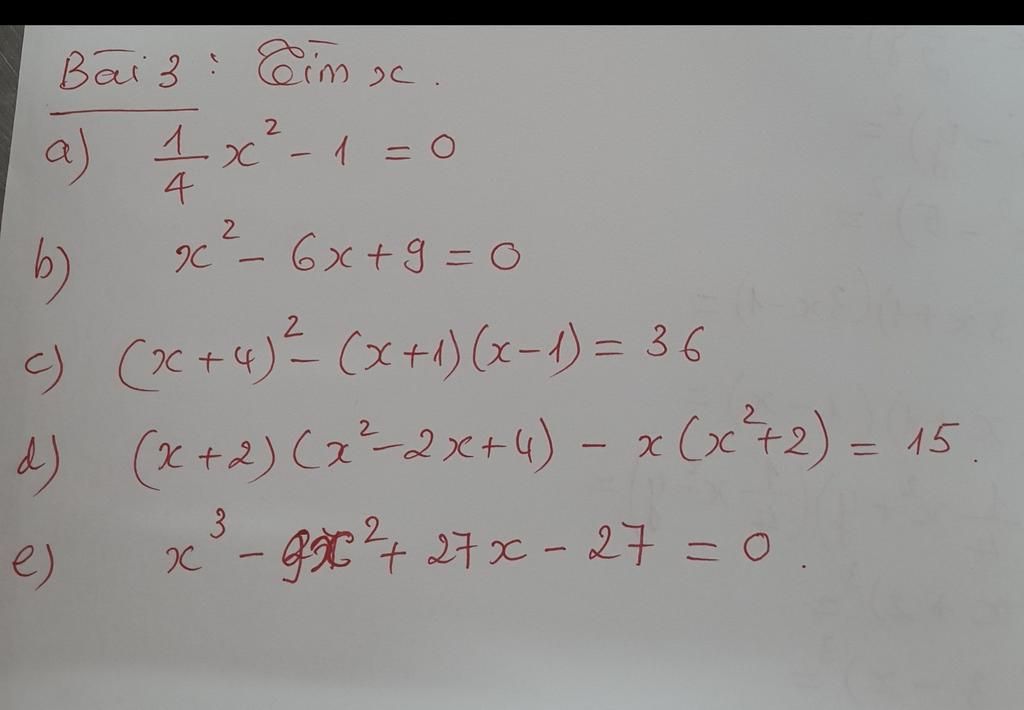 Bài 3 : Tìm x.
a) 1/4 x² - 1 = 0
b) x² - 6x + 9 = 0
c) (x + 4)² - (x + 1)(x - 1) = 36
d) (x + 2)(x² - 2x + 4) - x(x² + 2) = 15.
e) x³ - 9x² + 27x - 27 = 0.